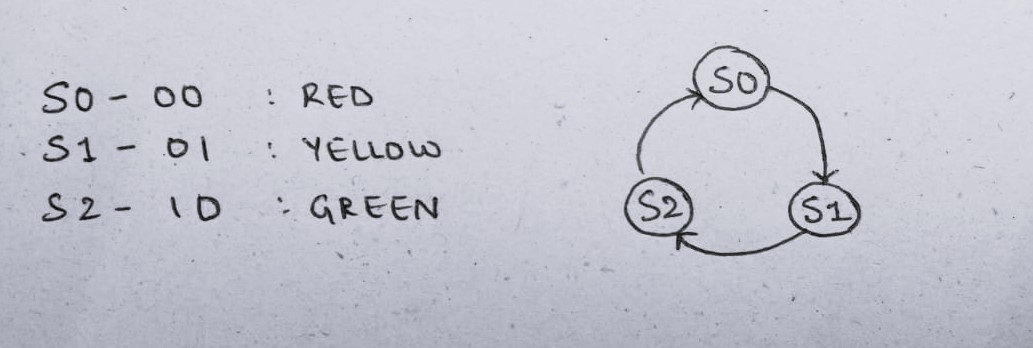 S0 - 00 : RED
S1 - 01 : YELLOW
S2 - 10 : GREEN
S0
S2
S1